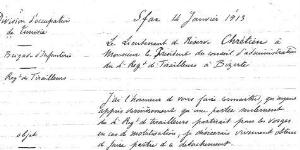 Division d'occupation
de Tunisie
Brigade d'Infanterie
Régt de Tirailleurs
Objet
Sfax 14 Janvier 1913
Le Lieutenant de Réserve Chrétien à
Monsieur le Président du conseil d'administration
du Régt de Tirailleurs à Bizerte
J'ai l'honneur de vous faire connaître, qu'ayant
appris dernièrement qu'une portion seulement
du Régt de Tirailleurs partirait pour les Vosges
en cas de mobilisation, je désirerais vivement obtenir
de faire partie de ce détachement.